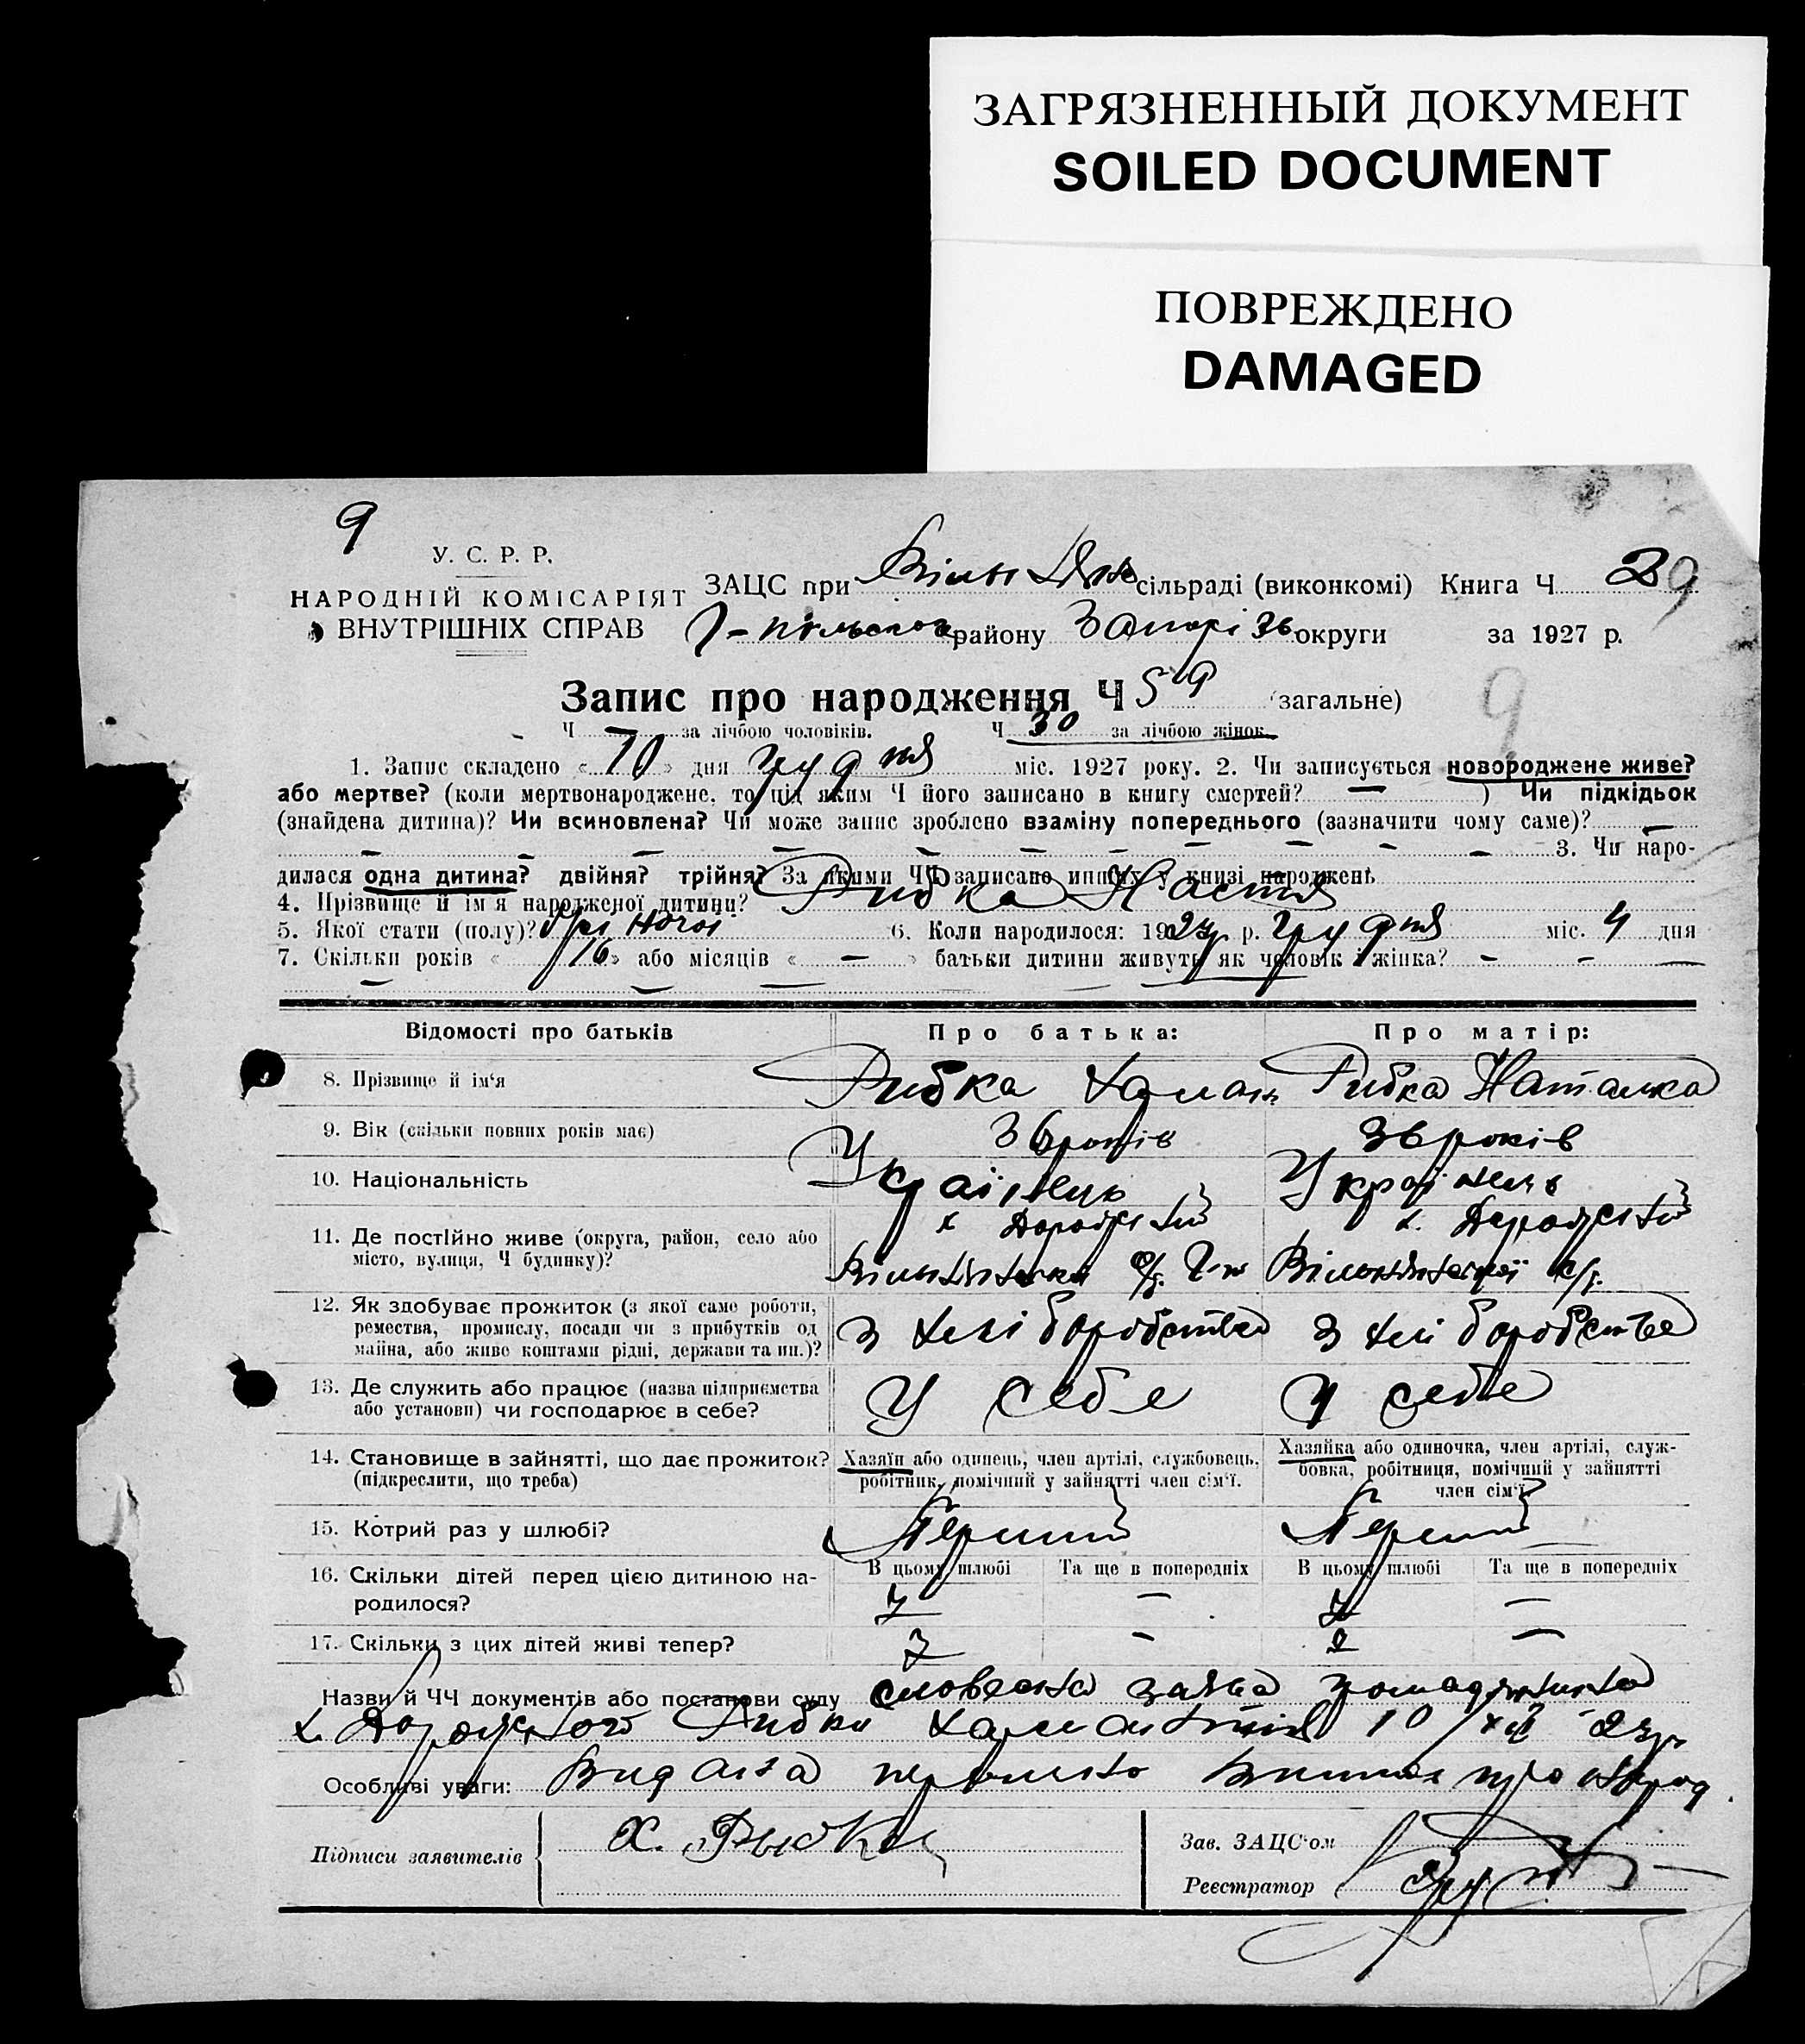 ЗАГРЯЗНЕННЫЙ ДОКУМЕНТ
SOILED DOCUMENT
ПОВРЕЖДЕНО
DAMAGED
9
У. С. Р. Р.
НАРОДНІЙ КОМІСАРІЯТ
ВНУТРІШНІХ СПРАВ
ЗАЦС при сільраді (виконкомі) Книга Ч 29
району Запорізь округи за 1927 р.
Запис про народження Ч 59 (загальне)
9
Ч за лічбою чоловіків. Ч 30 за лічбою жінок
1. Запис складено « 10 » дня грудня міс. 1927 року. 2. Чи записується новороджене живе?
або мертве? (коли мертвонароджене, то під яким Ч його записано в книгу смертей? — ) Чи підкідьок
(знайдена дитина)? Чи всиновлена? Чи може запис зроблено взаміну попереднього (зазначити чому саме)? —
— — — — — — — — — — 3. Чи наро-
дилася одна дитина? двійня? трійня? За якими ЧЧ записано инших у книзі народжень
4. Прізвище й імя народженої дитини? Рибка Настя
5. Якої стати (полу)? жіночої 6. Коли народилося: 1927 р. грудня міс. 4 дня
7. Скільки років « 16 » або місяців « — » батьки дитини живуть як чоловік і жінка? — — —
— — —
Відомості про батьків Про батька: Про матір:
8. Прізвище й ім'я Рибка Рибка Наталка
9. Вік (скільки повних років має) 36 років 36 років
10. Національність Українець Українець
11. Де постійно живе (округа, район, село або
місто, вулиця, Ч будинку)?
12. Як здобуває прожиток (з якої саме роботи,
ремества, промислу, посади чи з прибутків од
майна, або живе коштами рідні, держави та ин.)? з хліборобства з хліборобства
13. Де служить або працює (назва підприємства
або установи) чи господарює в себе? У себе У себе
14. Становище в зайнятті, що дає прожиток?
(підкреслити, що треба)
Хазяїн або одинець, член артілі, службовець,
робітник, помічний у зайнятті член сім'ї.
Хазяйка або одиночка, член артілі, служ-
бовка, робітниця, помічний у зайнятті
член сім'ї
15. Котрий раз у шлюбі? Перший Перший
В цьому шлюбі Та ще в попередніх В цьому шлюбі Та ще в попередніх
16. Скільки дітей перед цією дитиною на-
родилося? 7 — 7 —
17. Скільки з цих дітей живі тепер? —  —
Назви й ЧЧ документів або постанови суду словесна заява громадянина
Рибки 10/XII 27р.
Особливі уваги: Видана первісна виписк про народ.
Підписи заявителів Х. Рыбка
Зав. ЗАЦС'ом
Реєстратор